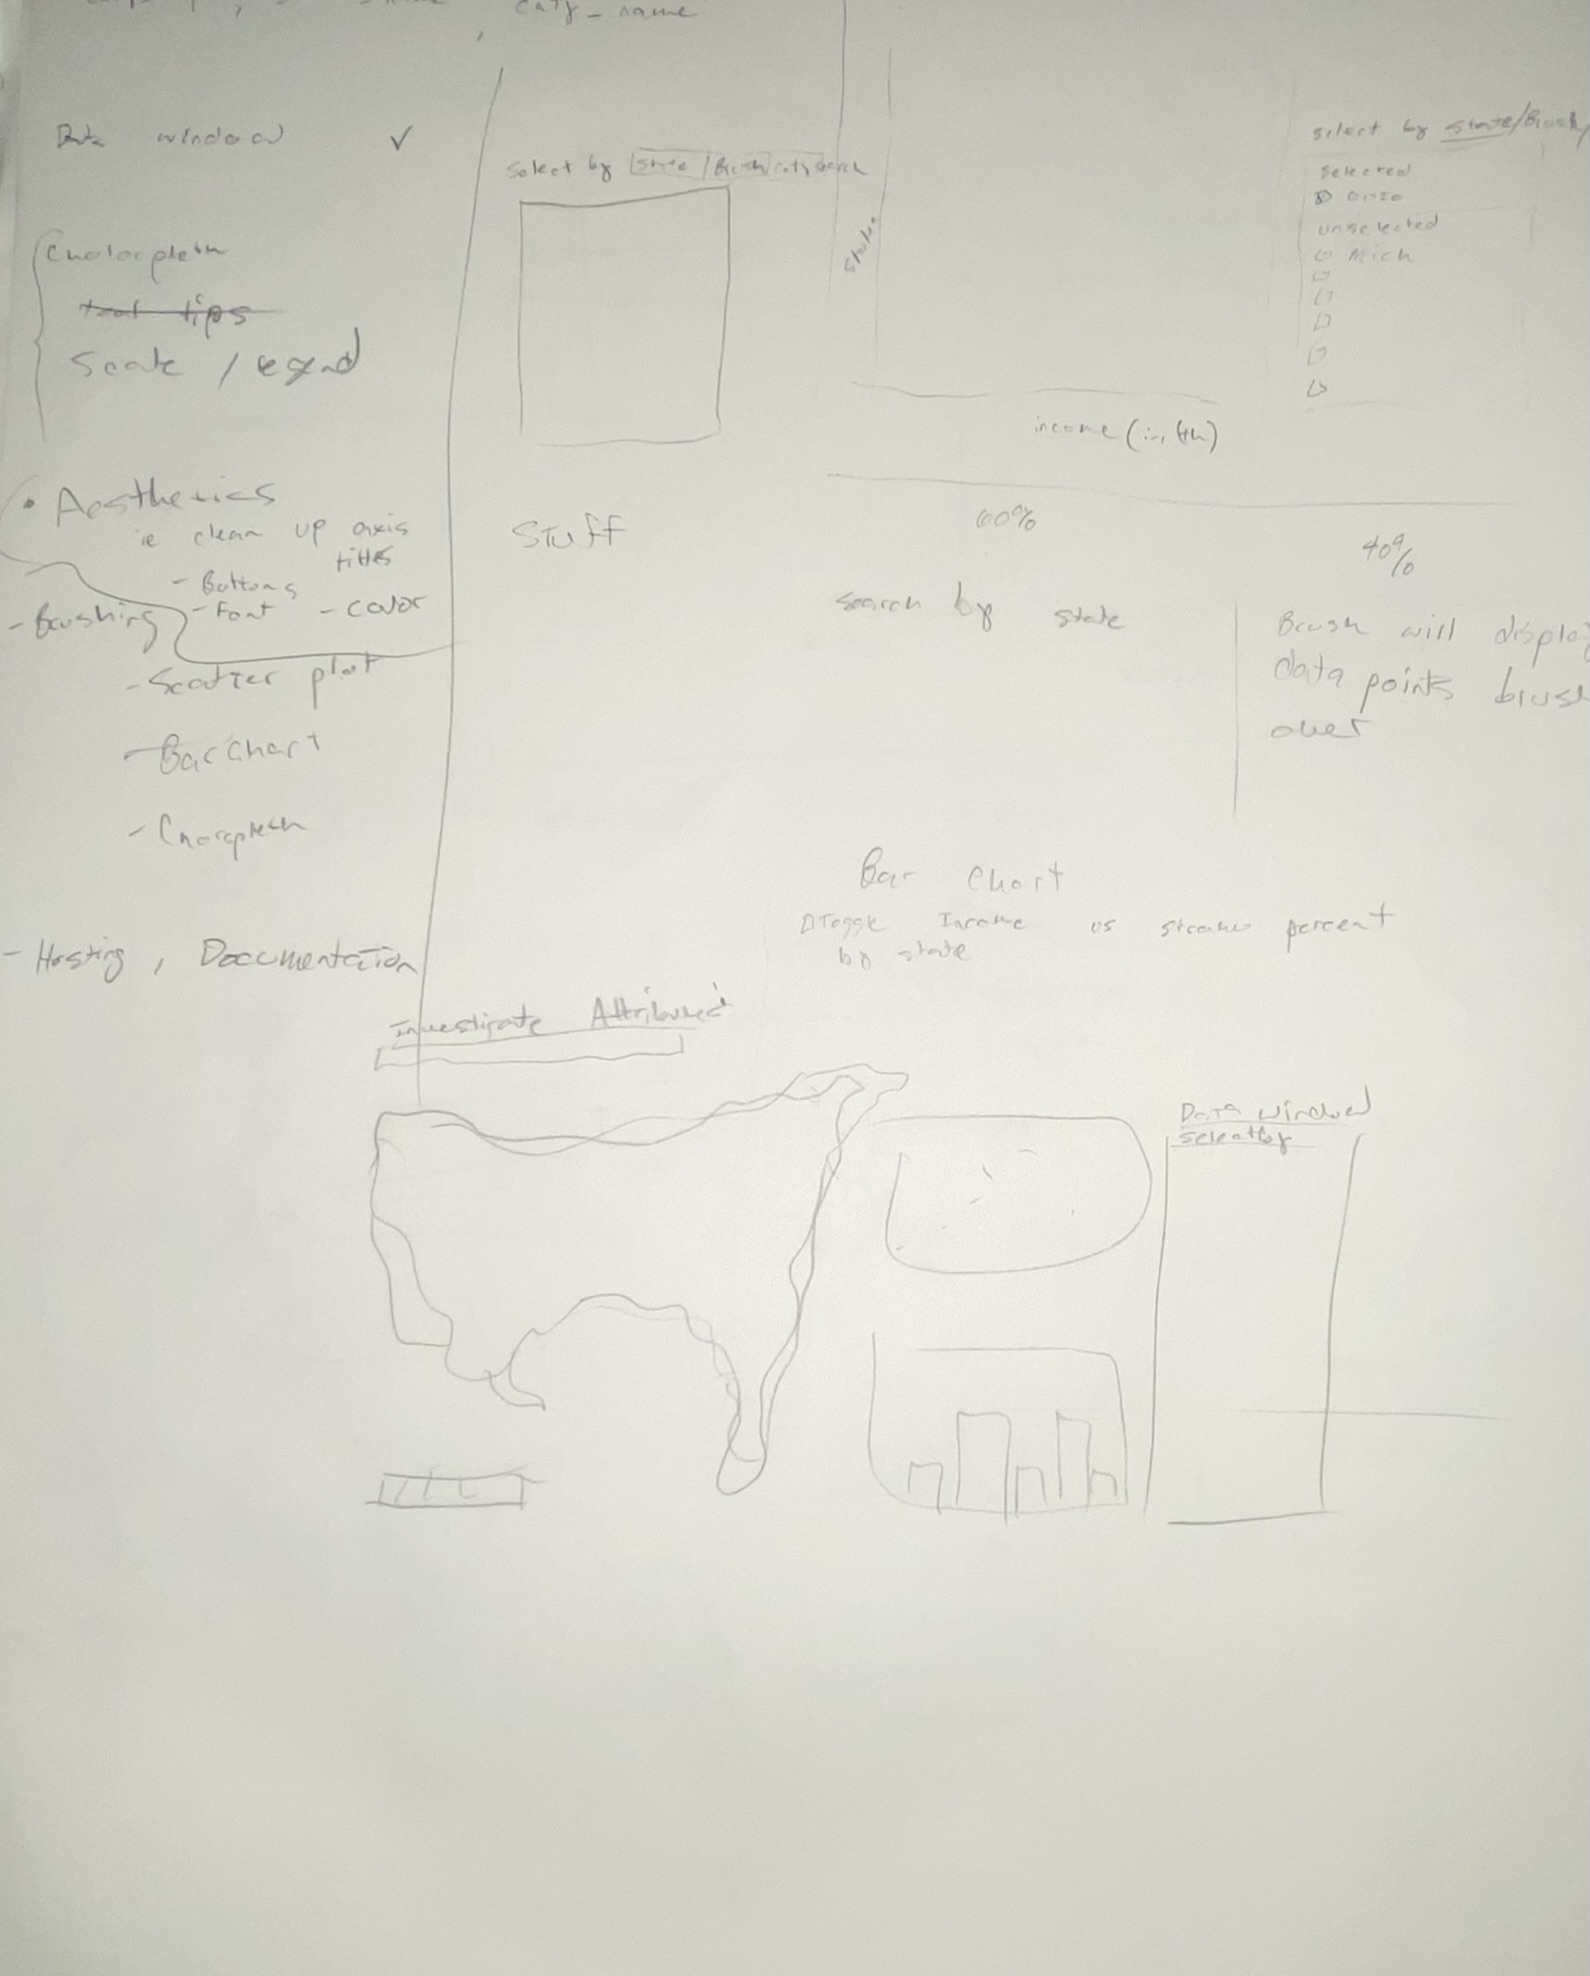 cnty_name
Data window ✓
Cholorpleth
tool tips
Scale / legend
• Aesthetics
ie clean up axis
titles
- Buttons
- Font - color
- Brushing
- Scatter plot
- Bar Chart
- Choropleth
- Hosting, Documentation
Select by State / Brush / cnty search
Stuff
income (in th)
select by State/Brush/
Selected
unselected
Mich
60%
40%
search by state
Brush will display
data points brush
over
Bar Chart
Toggle Income vs percent
by state
Investigate Attribute
Data window
select by